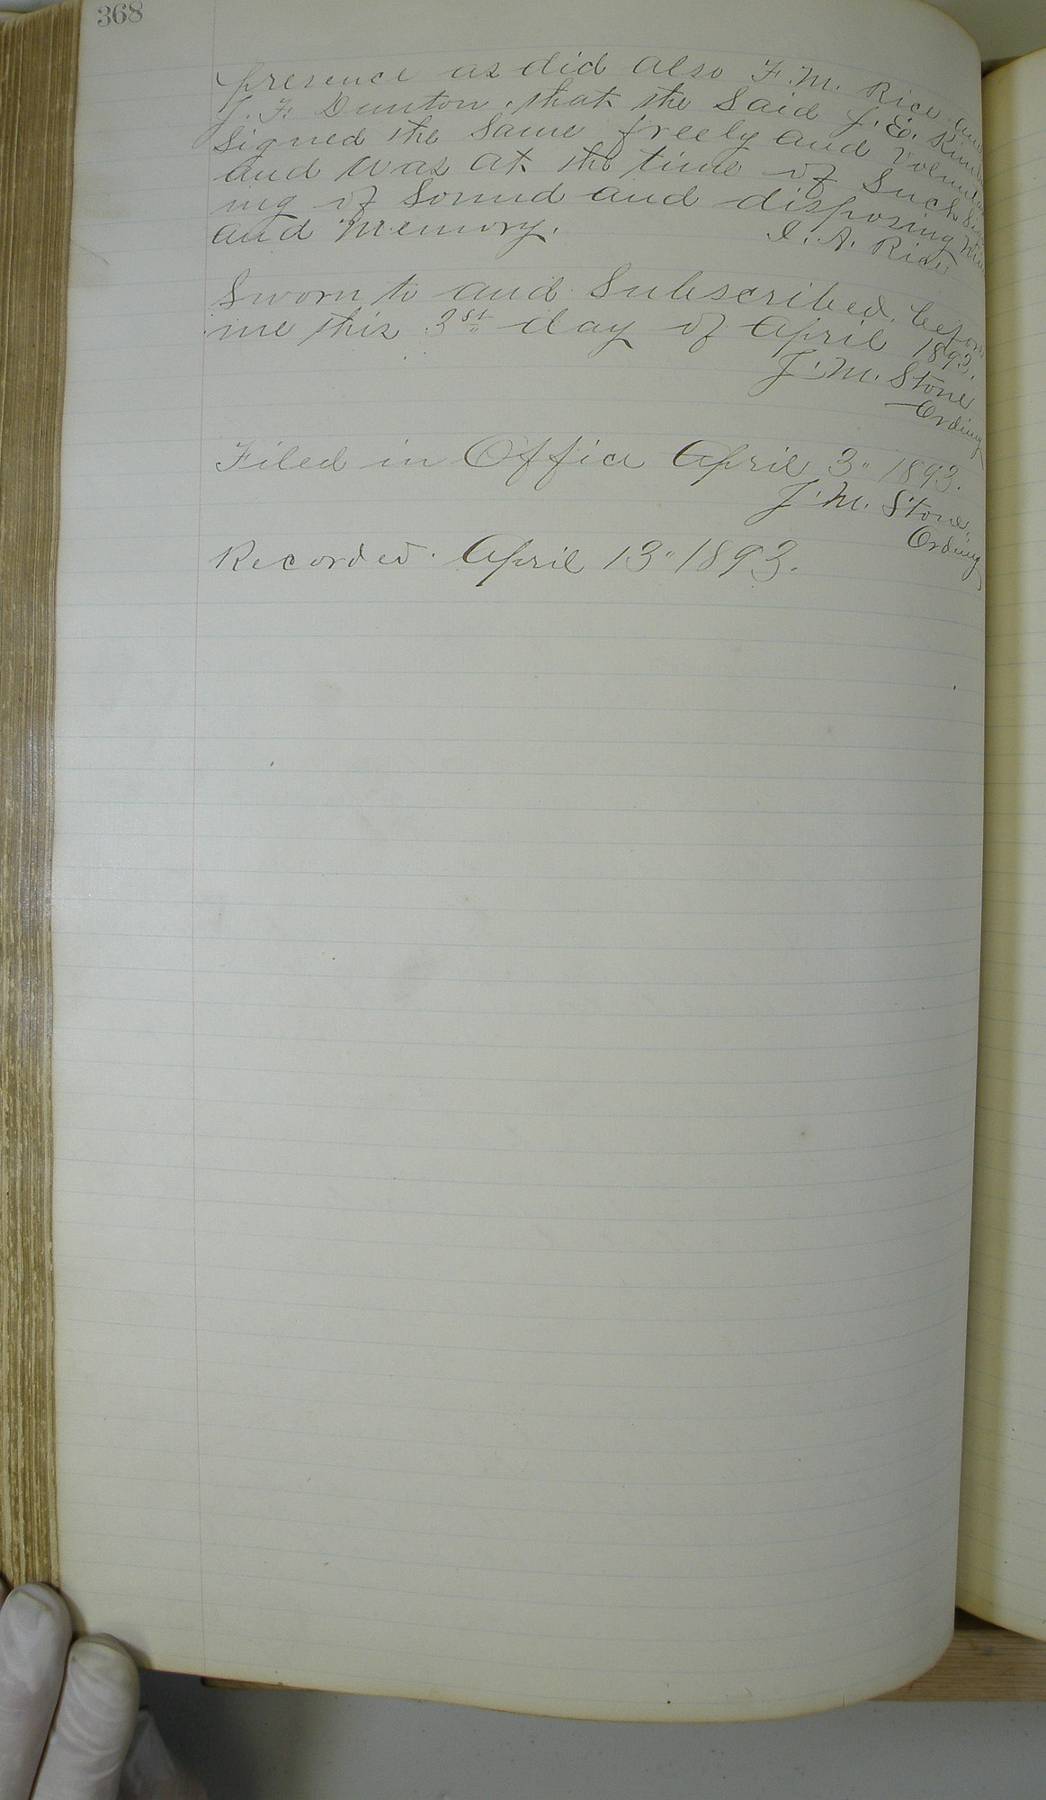 368
presence as did also F. M. Rice and
J. F. Dunton, that the Said J. E.
Signed the Same freely and
and was at the time of Such Sig
ing of Sound and disposing
and Memory.
I. A. Rice
Sworn to and Subscribed before
me this 3st day of April 1893.
J. M. Stone
Ordinary
Filed in Office April 3" 1893.
J. M. Stone,
Ordinary
Recorded April 13" 1893.